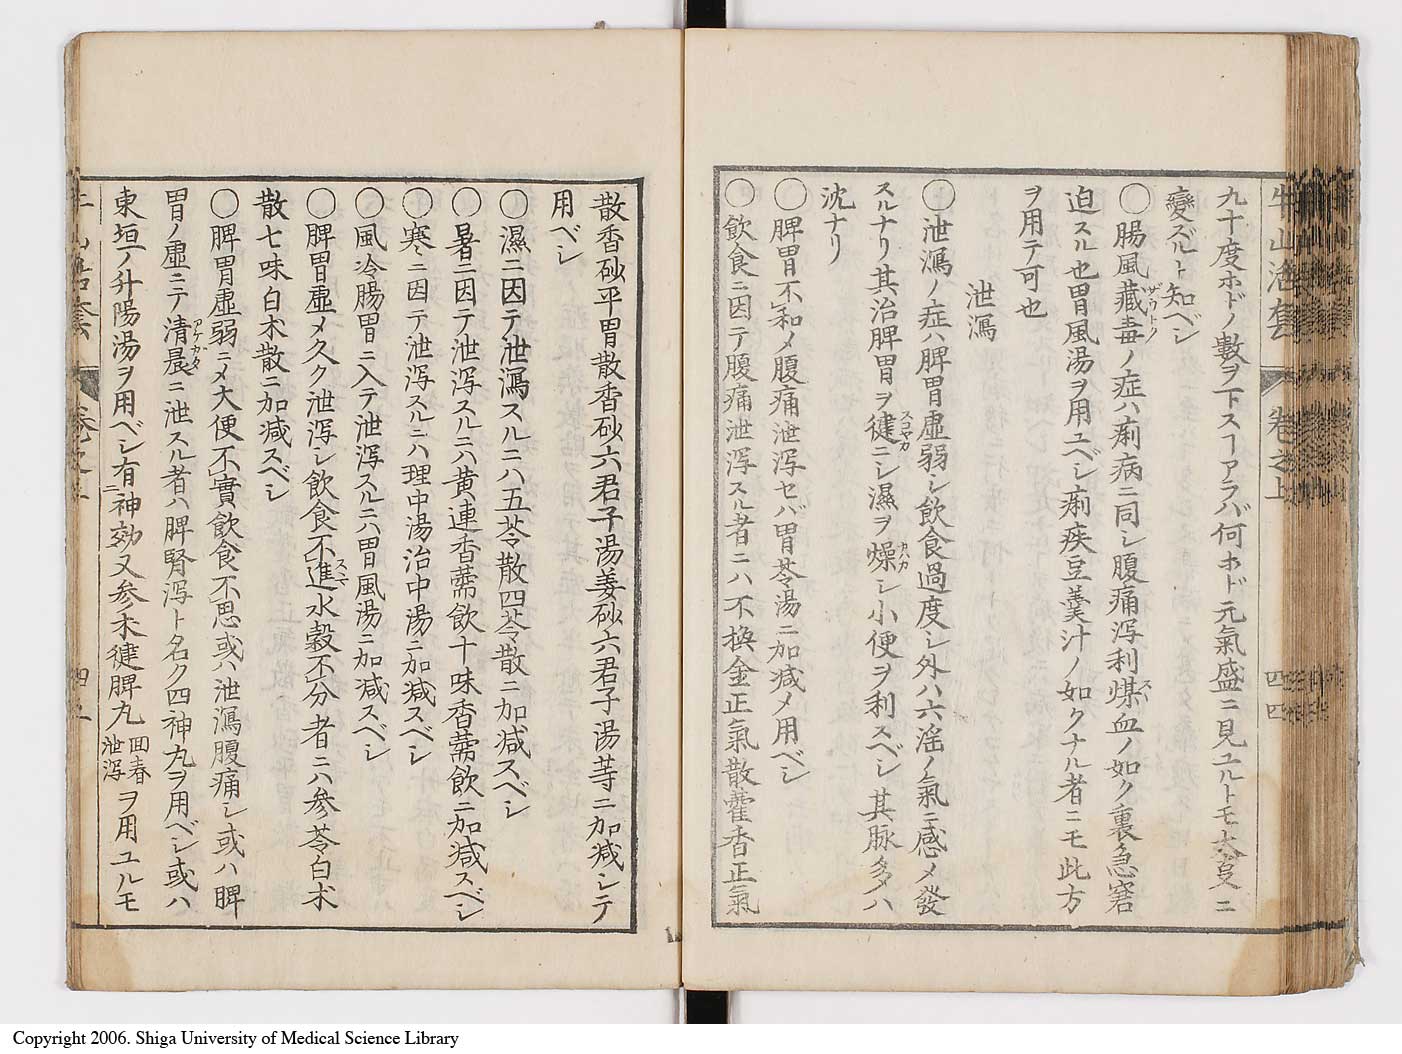 九十度ホドノ數ヲ下スヿアラバ何ホド元氣盛ニ見ユルトモ大ニ
變ズルト知ベシ
〇腸風藏毒ノ症ハ痢病ニ同シ腹痛瀉利煤血ノ如ク裏急窘
ザウドク
スヽ
迫スル也胃風湯ヲ用ユベシ痢疾豆羹汁ノ如クナル者ニモ此方
ヲ用テ可也
泄瀉
〇泄瀉ノ症ハ脾胃虚弱シ飲食過度シ外ハ六淫ノ氣ニ感メ發
スルナリ其治脾胃ヲ健ニシ濕ヲ燥シ小便ヲ利スベシ其脉多クハ
スコヤカ
カハカ
沈ナリ
〇脾胃不和メ腹痛泄瀉セバ胃苓湯ニ加减メ用ベシ
〇飲食ニ因テ腹痛泄瀉スル者ニハ不換金正氣散藿香正氣
牛山活套
卷之上
四四
散香砂平胃散香砂六君子湯姜砂六君子湯等ニ加减シテ
用ベシ
〇濕ニ因テ泄瀉スルニハ五苓散四苓散ニ加减スベシ
〇暑ニ因テ泄瀉スルニハ黄連香薷飲十味香薷飲ニ加减スベシ
〇寒ニ因テ泄瀉スルニハ理中湯治中湯ニ加减スベシ
〇風冷腸胃ニ入テ泄瀉スルニハ胃風湯ニ加减スベシ
〇脾胃虚メ久ク泄瀉シ飲食不進水穀不分者ニハ参苓白朮
スヽマ
散七味白朮散ニ加减スベシ
〇脾胃虚弱ニメ大便不實飲食不思或ハ泄瀉腹痛シ或ハ脾
胃ノ虚ニテ清晨ニ泄スル者ハ脾腎瀉ト名ク四神丸ヲ用ベシ或ハ
アケカタ
東垣ノ升陽湯ヲ用ベシ有神効又参朮健脾丸回春泄瀉ヲ用ユルモ
ニ